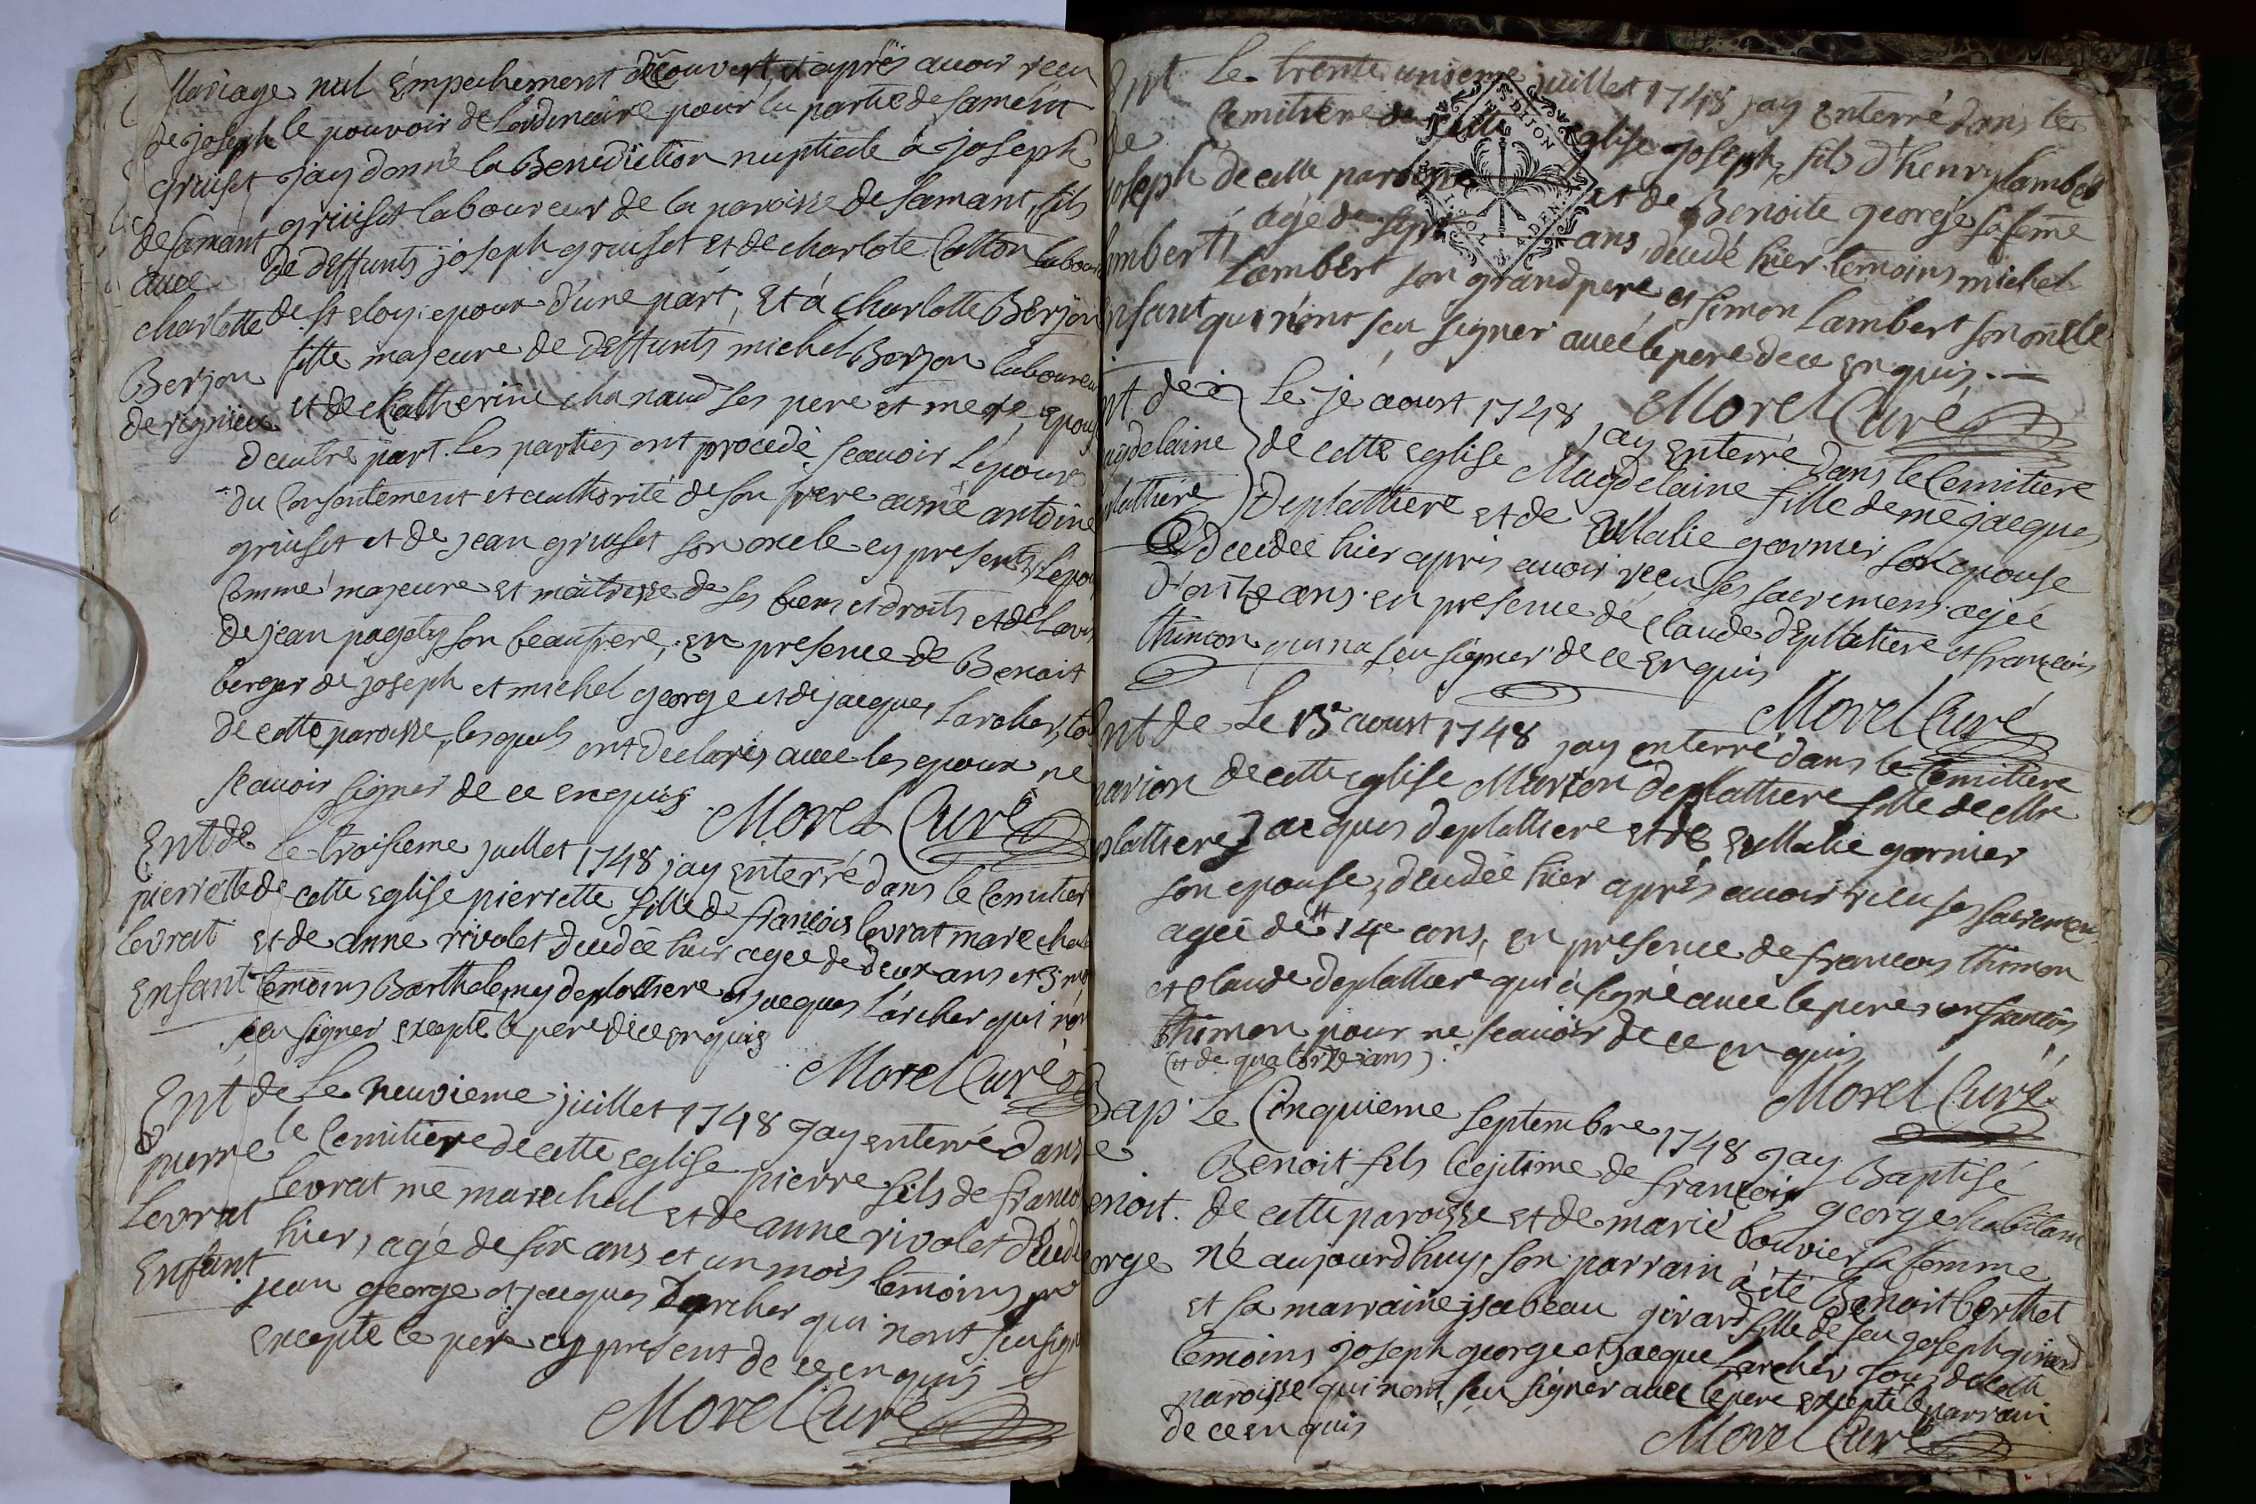 Mariage
de joseph
griuset
de samant
avec
charlotte
Berjon
de rignieu
nul émpechement découvert et aprés avoir receu
le pouvoir de lordinaire pour la partie de samant
jay donné la Benediction nuptiale à joseph
griuset laboureur de la paroisse de samant, fils
de deffunts joseph griuset et de charlote Cotton
de st eloy epoux d'une part, et à charlotte Berjon
fille majeure de deffunts michel Berjon laboureur
et de Catherine chanaud ses pere et mere, epouse
d'autre part. Les parties ont procedé, scavoir l'epoux
du consentement et authorité de son frere ainé antoine
griuset et de jean griuset son oncle cy presents, l'epouse
comme majeure et maitresse de ses biens et droits et de l'avis
de jean pagety son beaufrere, en presence de Benoit
berger de joseph et michel george et de jacques Larcher, tous
de cette paroisse, lesquels ont declarés avec les epoux ne
scavoir signer de ce enquis
Morel Curé
Ent de
pierrette
Levrat
Enfant
Le troisieme juillet 1748 jay enterré dans le Cemitiere
de cette eglise pierrette fille de françois levrat marechal
et de anne rivolet decedée hier agée de deux ans et 3 mois
temoins Barthelemy deplattiere et jacques l'archer qui n'ont
sceu signer excepté le pere de ce enquis
Morel Curé
Ent de
pierre
Levrat
Enfant
Le neuvieme juillet 1748 jay enterré dans
le Cemitiere de cette eglise pierre fils de francois
levrat me marechal et de anne rivolet decedé
hier, agé de six ans et un mois temoins
jean george et jacques Larcher qui nont sceu signer
excepté le pere cy present de ce enquis
Morel Curé
Ent
de
joseph
Lambert
Enfant
Le trente unieme juillet 1748 jay enterré dans le
Cemitiere de cette eglise joseph, fils d'henry lambert
de cette paroisse et de Benoite george sa feme
agé de sept ans decedé hier temoins michel
Lambert son grand pere et simon Lambert son oncle
qui n'ont sceu signer avec le pere de ce enquis
Morel Curé
Ent de
Magdelaine
deplattiere
Le 3e aoust 1748 jay enterré dans le Cemitiere
de cette eglise Magdelaine fille de me jacques
Deplattiere et de Eullalie garnier son epouse
decedée hier aprés avoir receu ses sacremens agée
d'onze ans en presence de claude deplatiere et francois
thimon qui na sceu signer de ce enquis
Morel Curé
Ent de
marion
deplattiere
Le 13e aoust 1748 jay enterré dans le Cemitiere
de cette eglise Marion deplattiere fille de Me
jacques deplattiere et de Eullalie garnier
son epouse, decedée hier aprés avoir receu ses sacremens
agée de 14e ans, en presence de francois thimon
et claude deplattiere qui à signé avec le pere non francois
thimon pour ne scavoir de ce enquis
(et de quatorze ans)
Morel Curé
Bap.
de
Benoit
george
Le Cinquieme septembre 1748 jay Baptisé
Benoit fils legitime de françois george habitant
de cette paroisse et de marie bouvier sa femme
né aujourd'huy, son parrain à été Benoit berthet
et sa marraine isabeau girard fille de feu joseph girard
temoins joseph george et jacque Larcher tous de cette
paroisse qui nont sceu signer avec le pere excepté le parrain
de ce enquis
Morel Curé
DIJON